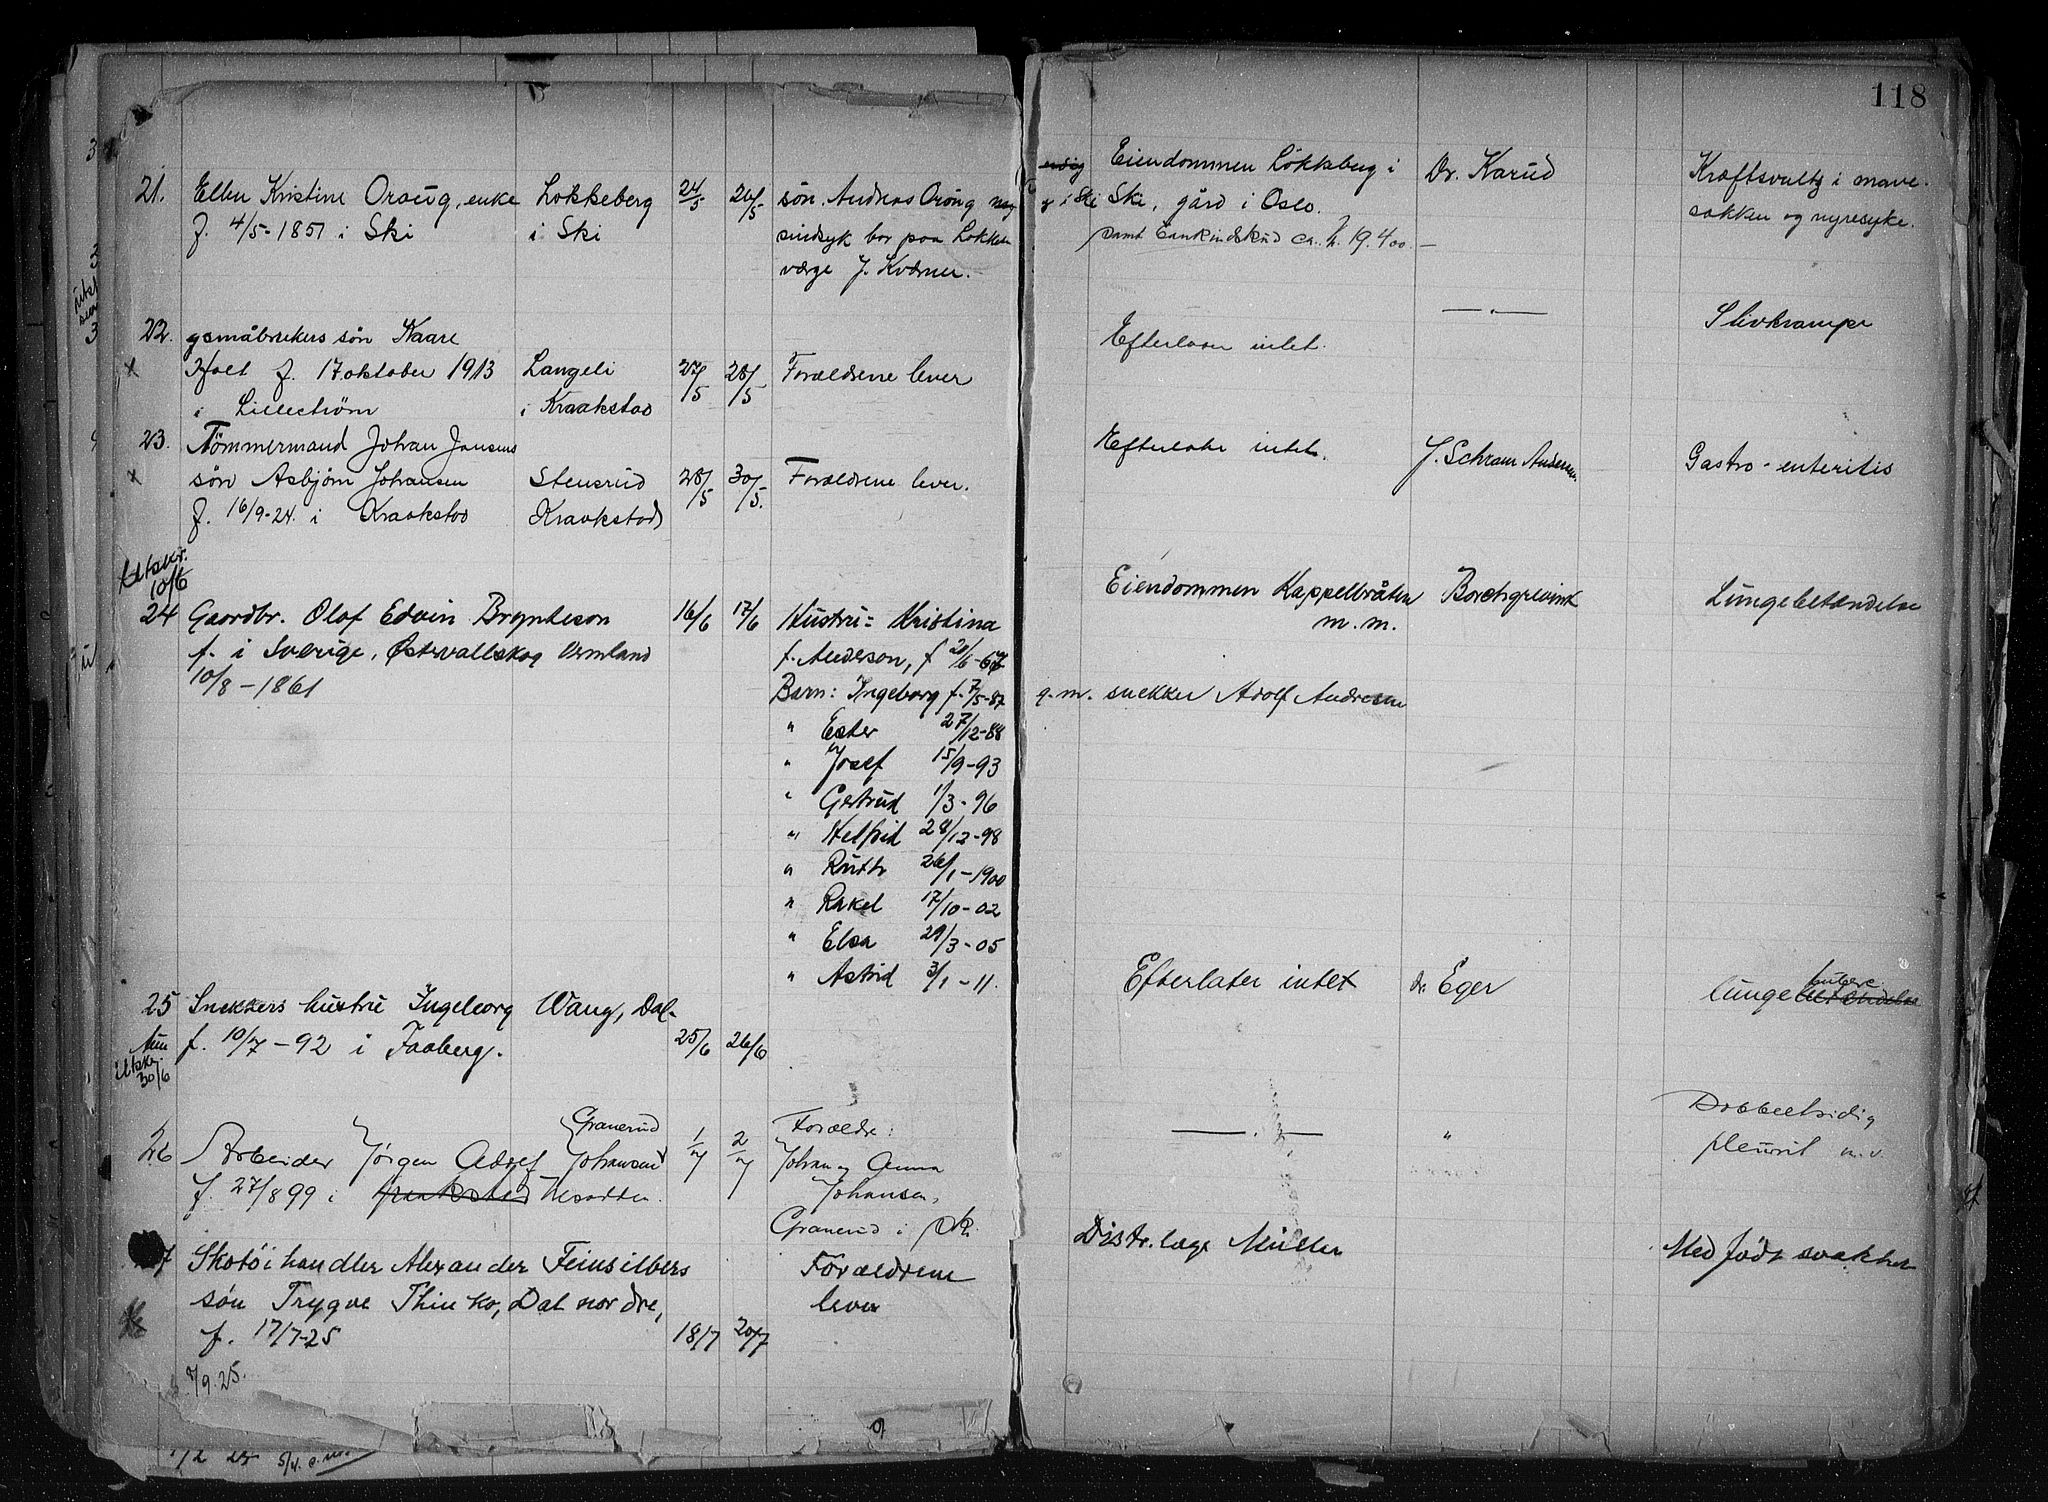 118
21. Ellen Kristine Oraug, enke Løkkeberg 24/5 26/5 søn Andreas Oraug
f. 4/5-1851 i Ski i Ski sindsyk bor paa Løkkeb
værge J. Kværner.
22. gsmåbrukers søn Kaare
x Holt f. 17. oktober 1913 Langeli 27/5 28/5 Forældrene lever
i Lillestrøm i Kraakstad
23. Tømmermand Johan Jansens
x søn Asbjørn Johansen Stensrud 28/5 30/5. Forældrene lever.
f. 16/9-24. i Kraakstad Kraakstad
Utskr.
10/6
24 Gaardbr. Olof Edvin Brynteson 16/6 17/6 Hustru: Kristina
f. i Sverige, Østervallskog Vermland f. Anderson, f 20/6-67
10/8-1861 Barn: Ingeborg f. 7/5-87
" Ester 27/12-88
" Josef 15/9-93
" Gertrud 1/3-96
" Helfrid 28/12-98
" Ruth 26/1-1900
" Rakel 17/10-02
" Elsa 29/3-05
" Astrid 3/1-11.
25 Snekkers hustru Ingeborg Wang, Dal-
f. 10/7-92 i Faaberg. 25/6 26/6
Utskr.
30/6
Granerud Forældre:
26 Arbeider Jørgen Adolf Johansen 1/7 2/7 Johan og Anna
f. 27/8 99 i Kraakstad Nesodden. Johansen,
Granerud i Ski
27 Skotøihandler Alexander Feinsilbers Forældrene
søn Trygve Thinko, Dal nordre, lever
f. 17/7-25 18/7 20/7
7/9.25.
Eiendommen Løkkeberg i Dr. Karud Kræftsvulst i mave-
i Ski Ski, gård i Oslo. sækken og nyresyke.
samt Bankindskud ca. kr. 19.400.—
Efterlater intet. —"— Stivkrampe
Efterlater intet. J. Schram Andersen. Gastro-enteritis
Eiendommen Kappelbråten Borchgrevink Lungebetændelse
m.m.
g.m. snekker Adolf Andresen
Efterlater intet dr. Eger lungebetændelse
tuberc
—"— " Dobbeltsidig
pleurit m.v.
Distr. læge Müller Medfødt svakhet